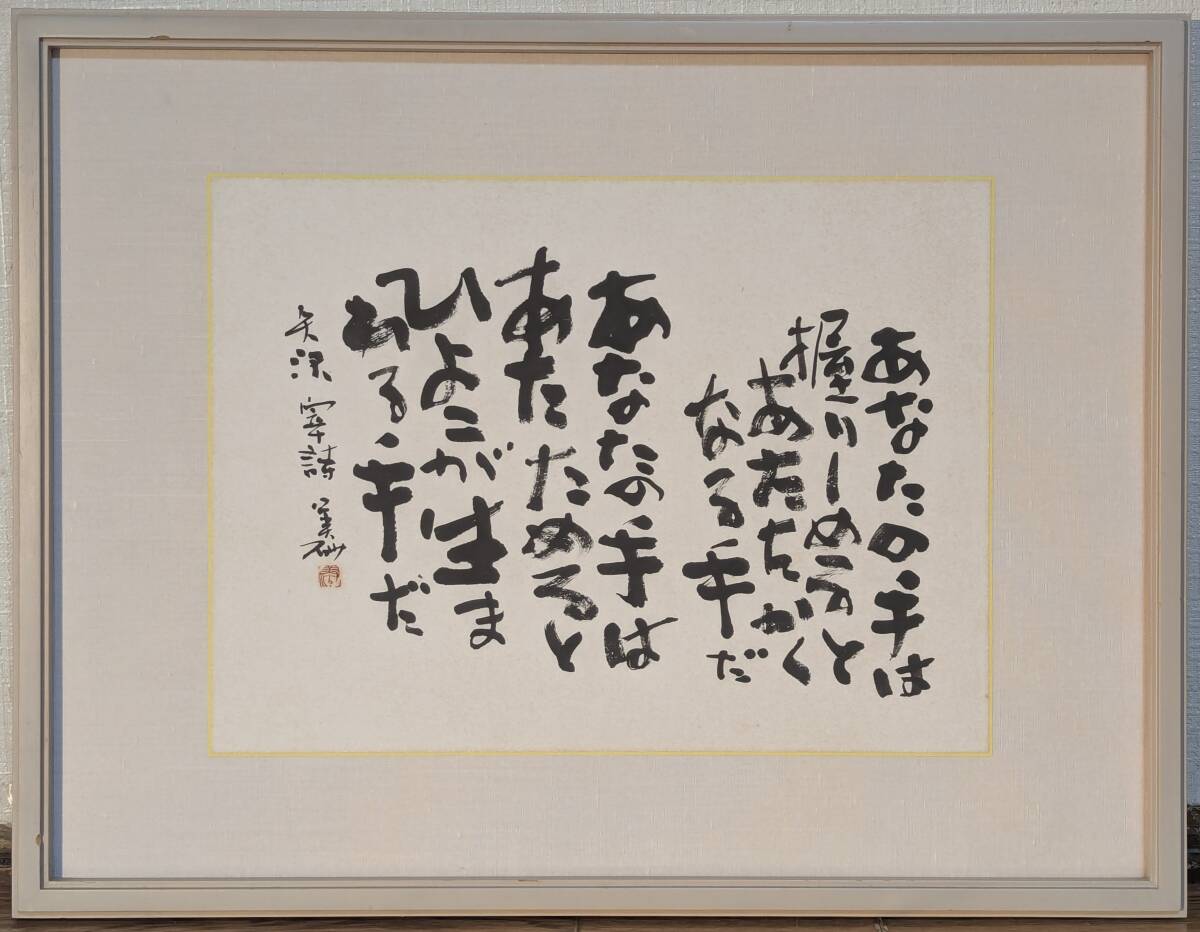 あなたの手は
握りしめると
あたたかく
なる手だ
あなたの手は
あたためると
ひよこが生ま
れる手だ
矢沢 宰詩 美砂